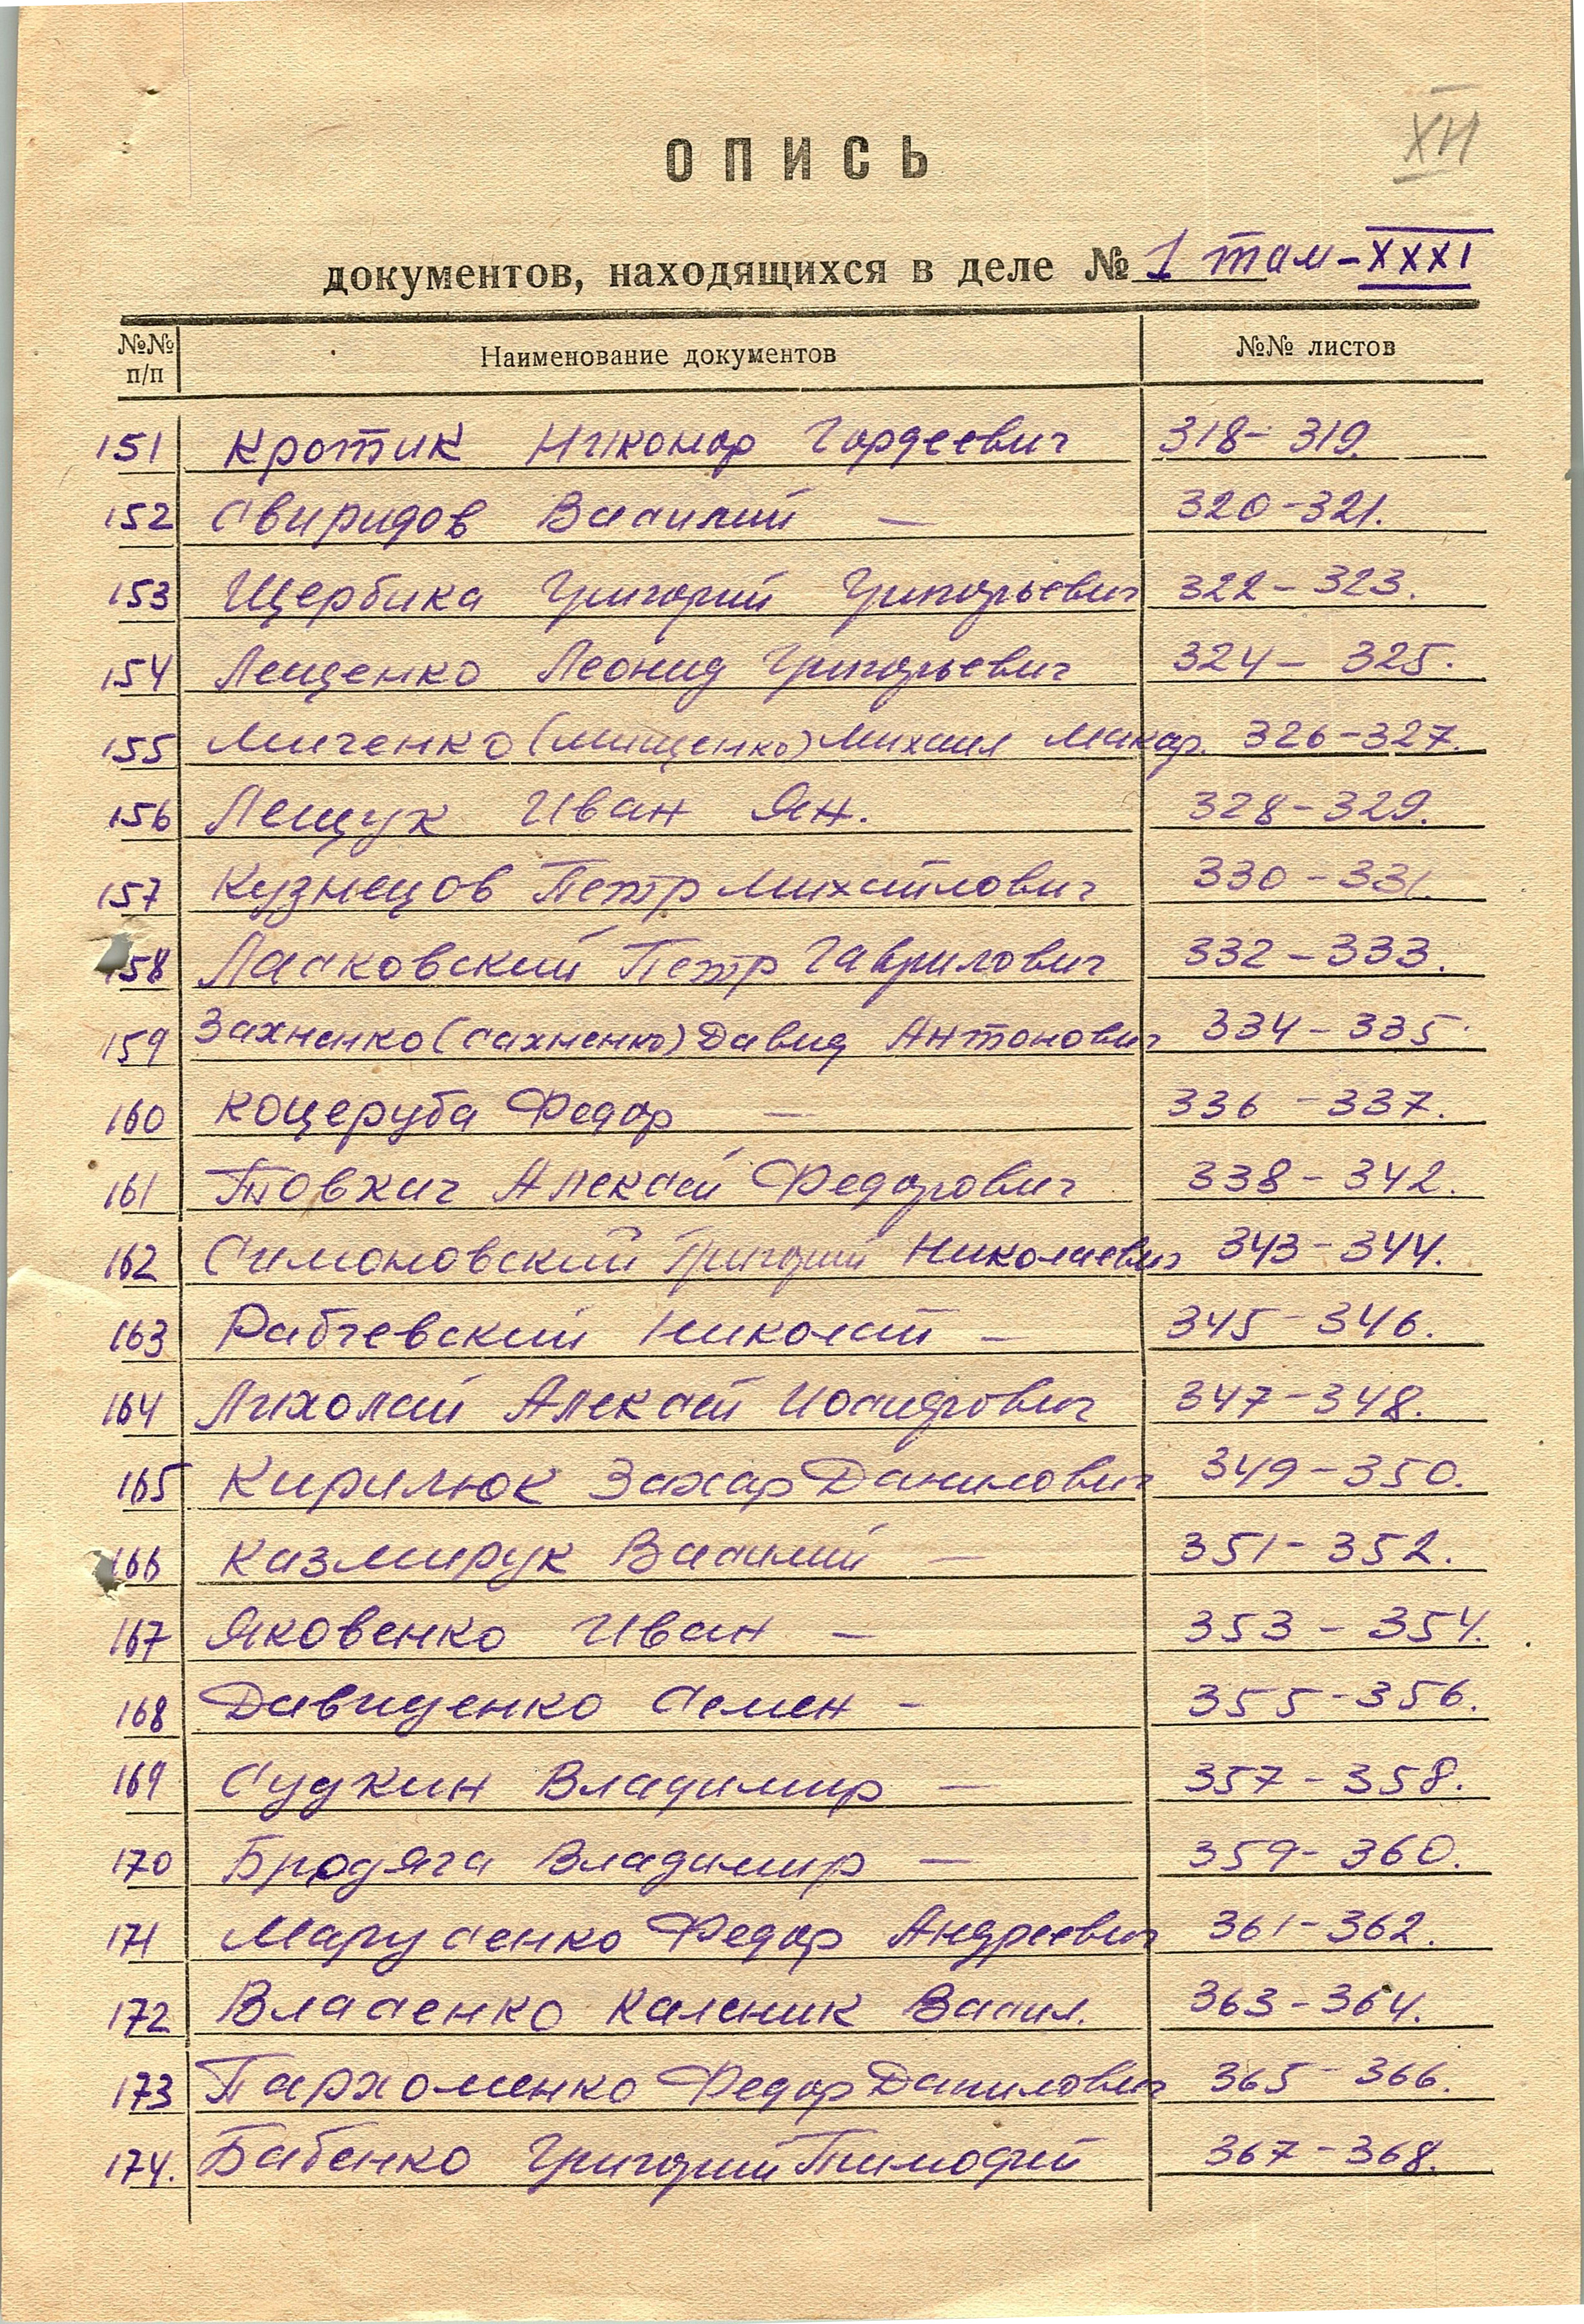 XII
ОПИСЬ
документов, находящихся в деле № 1 том-XXXI
№№ п/п Наименование документов №№ листов
151 Кротик Никонор Гордеевич 318-319.
152 Свиридов Василий — 320-321.
153 Щербина Григорий Григорьевич 322-323.
154 Лещенко Леонид Григорьевич 324-325.
155 Миченко (Мищенко) Михаил Макар. 326-327.
156 Лещук Иван Ян. 328-329.
157 Кузнецов Петр Михайлович 330-331.
158 Ласковский Петр Гаврилович 332-333.
159 Захненко (Сахненко) Давид Антонович 334-335
160 Коцеруба Федор — 336-337.
161 Товкач Алексей Федорович 338-342.
162 Симоновский Григорий Николаевич 343-344.
163 Рабчевский Николай — 345-346.
164 Лихолай Алексей 347-348.
165 Кирилюк Захар Данилович 349-350.
166 Казмирук Василий — 351-352.
167 Яковенко Иван — 353-354.
168 Давиденко Семен - 355-356.
169 Судкин Владимир — 357-358.
170 Бродяга Владимир — 359-360.
171 Марусенко Федор Андреевич 361-362.
172 Власенко Каленик Васил. 363-364.
173 Пархоменко Федор Данилович 365-366.
174. Бабенко Григорий Тимофей 367-368.